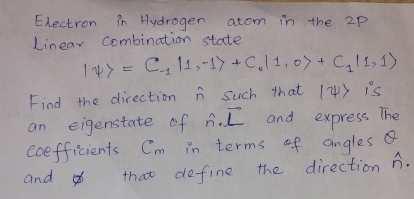 Electron in Hydrogen atom in the 2p
Linear Combination state
|ψ> = C₋₁ |1,-1> + C₀|1,0> + C₁|1,1)
Find the direction n̂ such that |ψ> is
an eigenstate of n̂.L⃗ and express The
coefficients Cm in terms of angles θ
and ø that define the direction n̂.